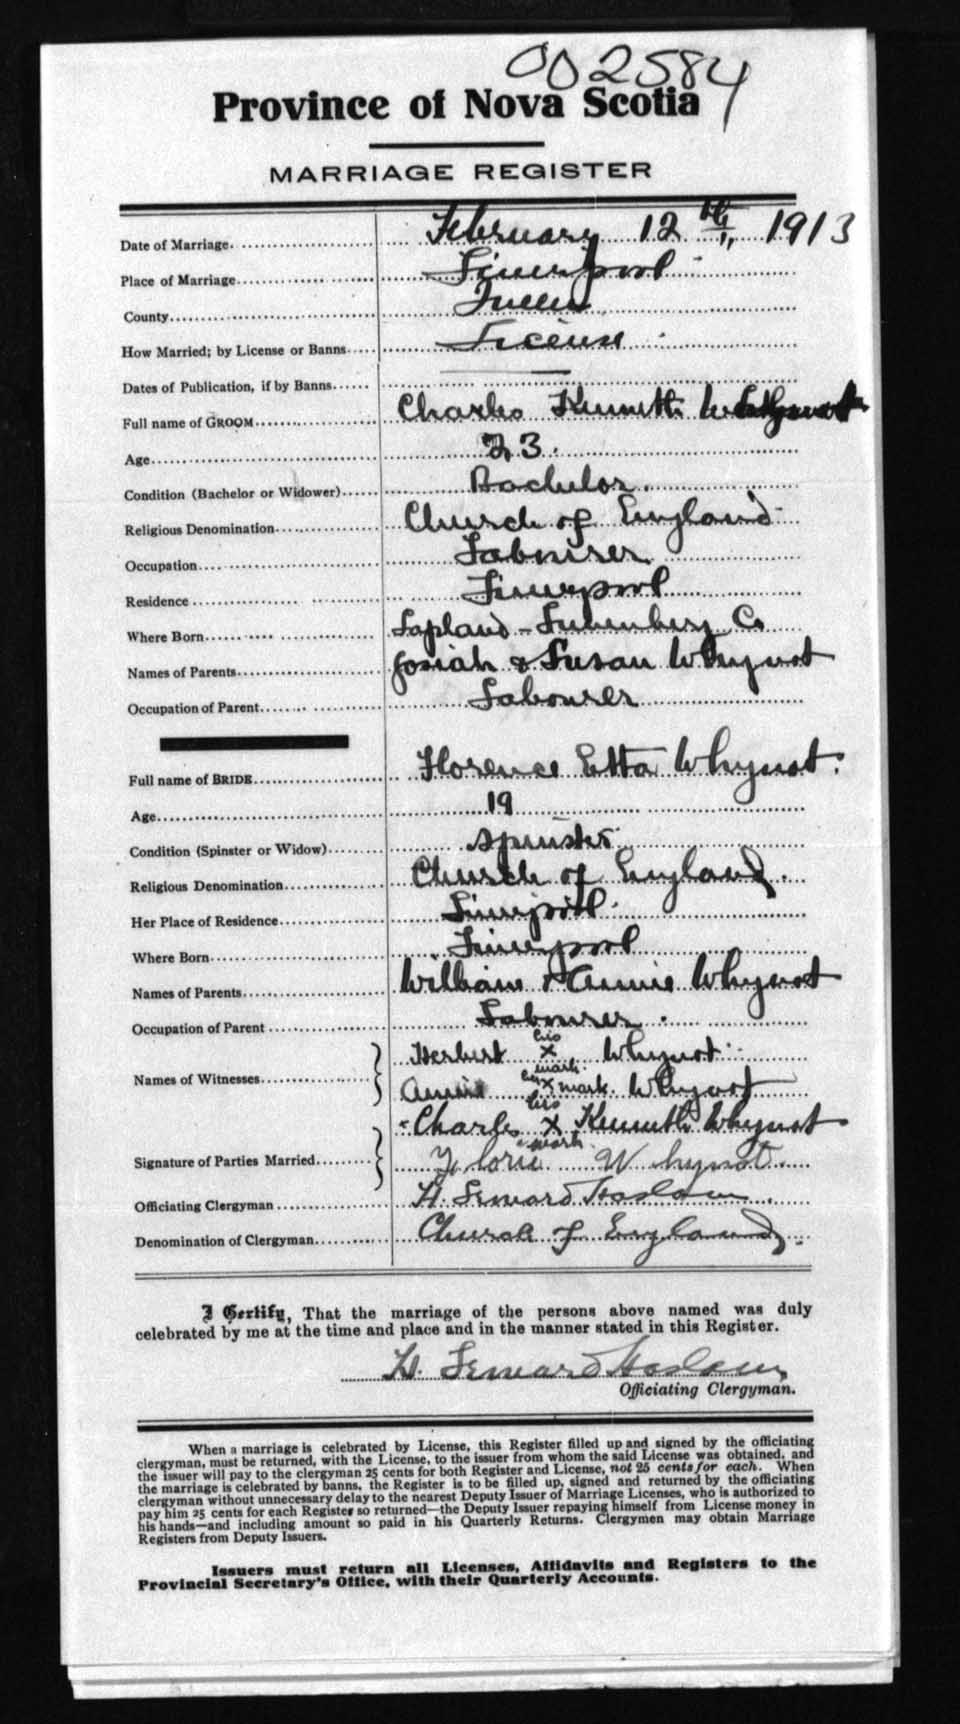 002584
Province of Nova Scotia
MARRIAGE REGISTER
Date of Marriage. February 12th, 1913
Place of Marriage Liverpool
County Queens
How Married; by License or Banns License
Dates of Publication, if by Banns
Full name of GROOM Charles Kenneth Whynot
Age 23.
Condition (Bachelor or Widower) Bachelor.
Religious Denomination Church of England
Occupation Labourer
Residence Liverpool
Where Born Lapland - Lunenburg Co
Names of Parents Josiah & Susan Whynot
Occupation of Parent Labourer
Full name of BRIDE Florence Etta Whynot.
Age 19
Condition (Spinster or Widow) Spinster
Religious Denomination Church of England.
Her Place of Residence Liverpool
Where Born Liverpool
Names of Parents William & Annie Whynot
Occupation of Parent Labourer.
Names of Witnesses Herbert his x mark Whynot
Annie her x mark Whynot
Signature of Parties Married Charles his x mark Kenneth Whynot
Florie Whynot.
Officiating Clergyman H. Leward Haslam.
Denomination of Clergyman Church of England.
I Certify, That the marriage of the persons above named was duly
celebrated by me at the time and place and in the manner stated in this Register.
H. Leward Haslam
Officiating Clergyman.
When a marriage is celebrated by License, this Register filled up and signed by the officiating
clergyman, must be returned, with the License, to the issuer from whom the said License was obtained, and
the issuer will pay to the clergyman 25 cents for both Register and License, not 25 cents for each. When
the marriage is celebrated by banns, the Register is to be filled up, signed and returned by the officiating
clergyman without unnecessary delay to the nearest Deputy Issuer of Marriage Licenses, who is authorized to
pay him 25 cents for each Register so returned—the Deputy Issuer repaying himself from License money in
his hands—and including amount so paid in his Quarterly Returns. Clergymen may obtain Marriage
Registers from Deputy Issuers.
Issuers must return all Licenses, Affidavits and Registers to the
Provincial Secretary's Office, with their Quarterly Accounts.